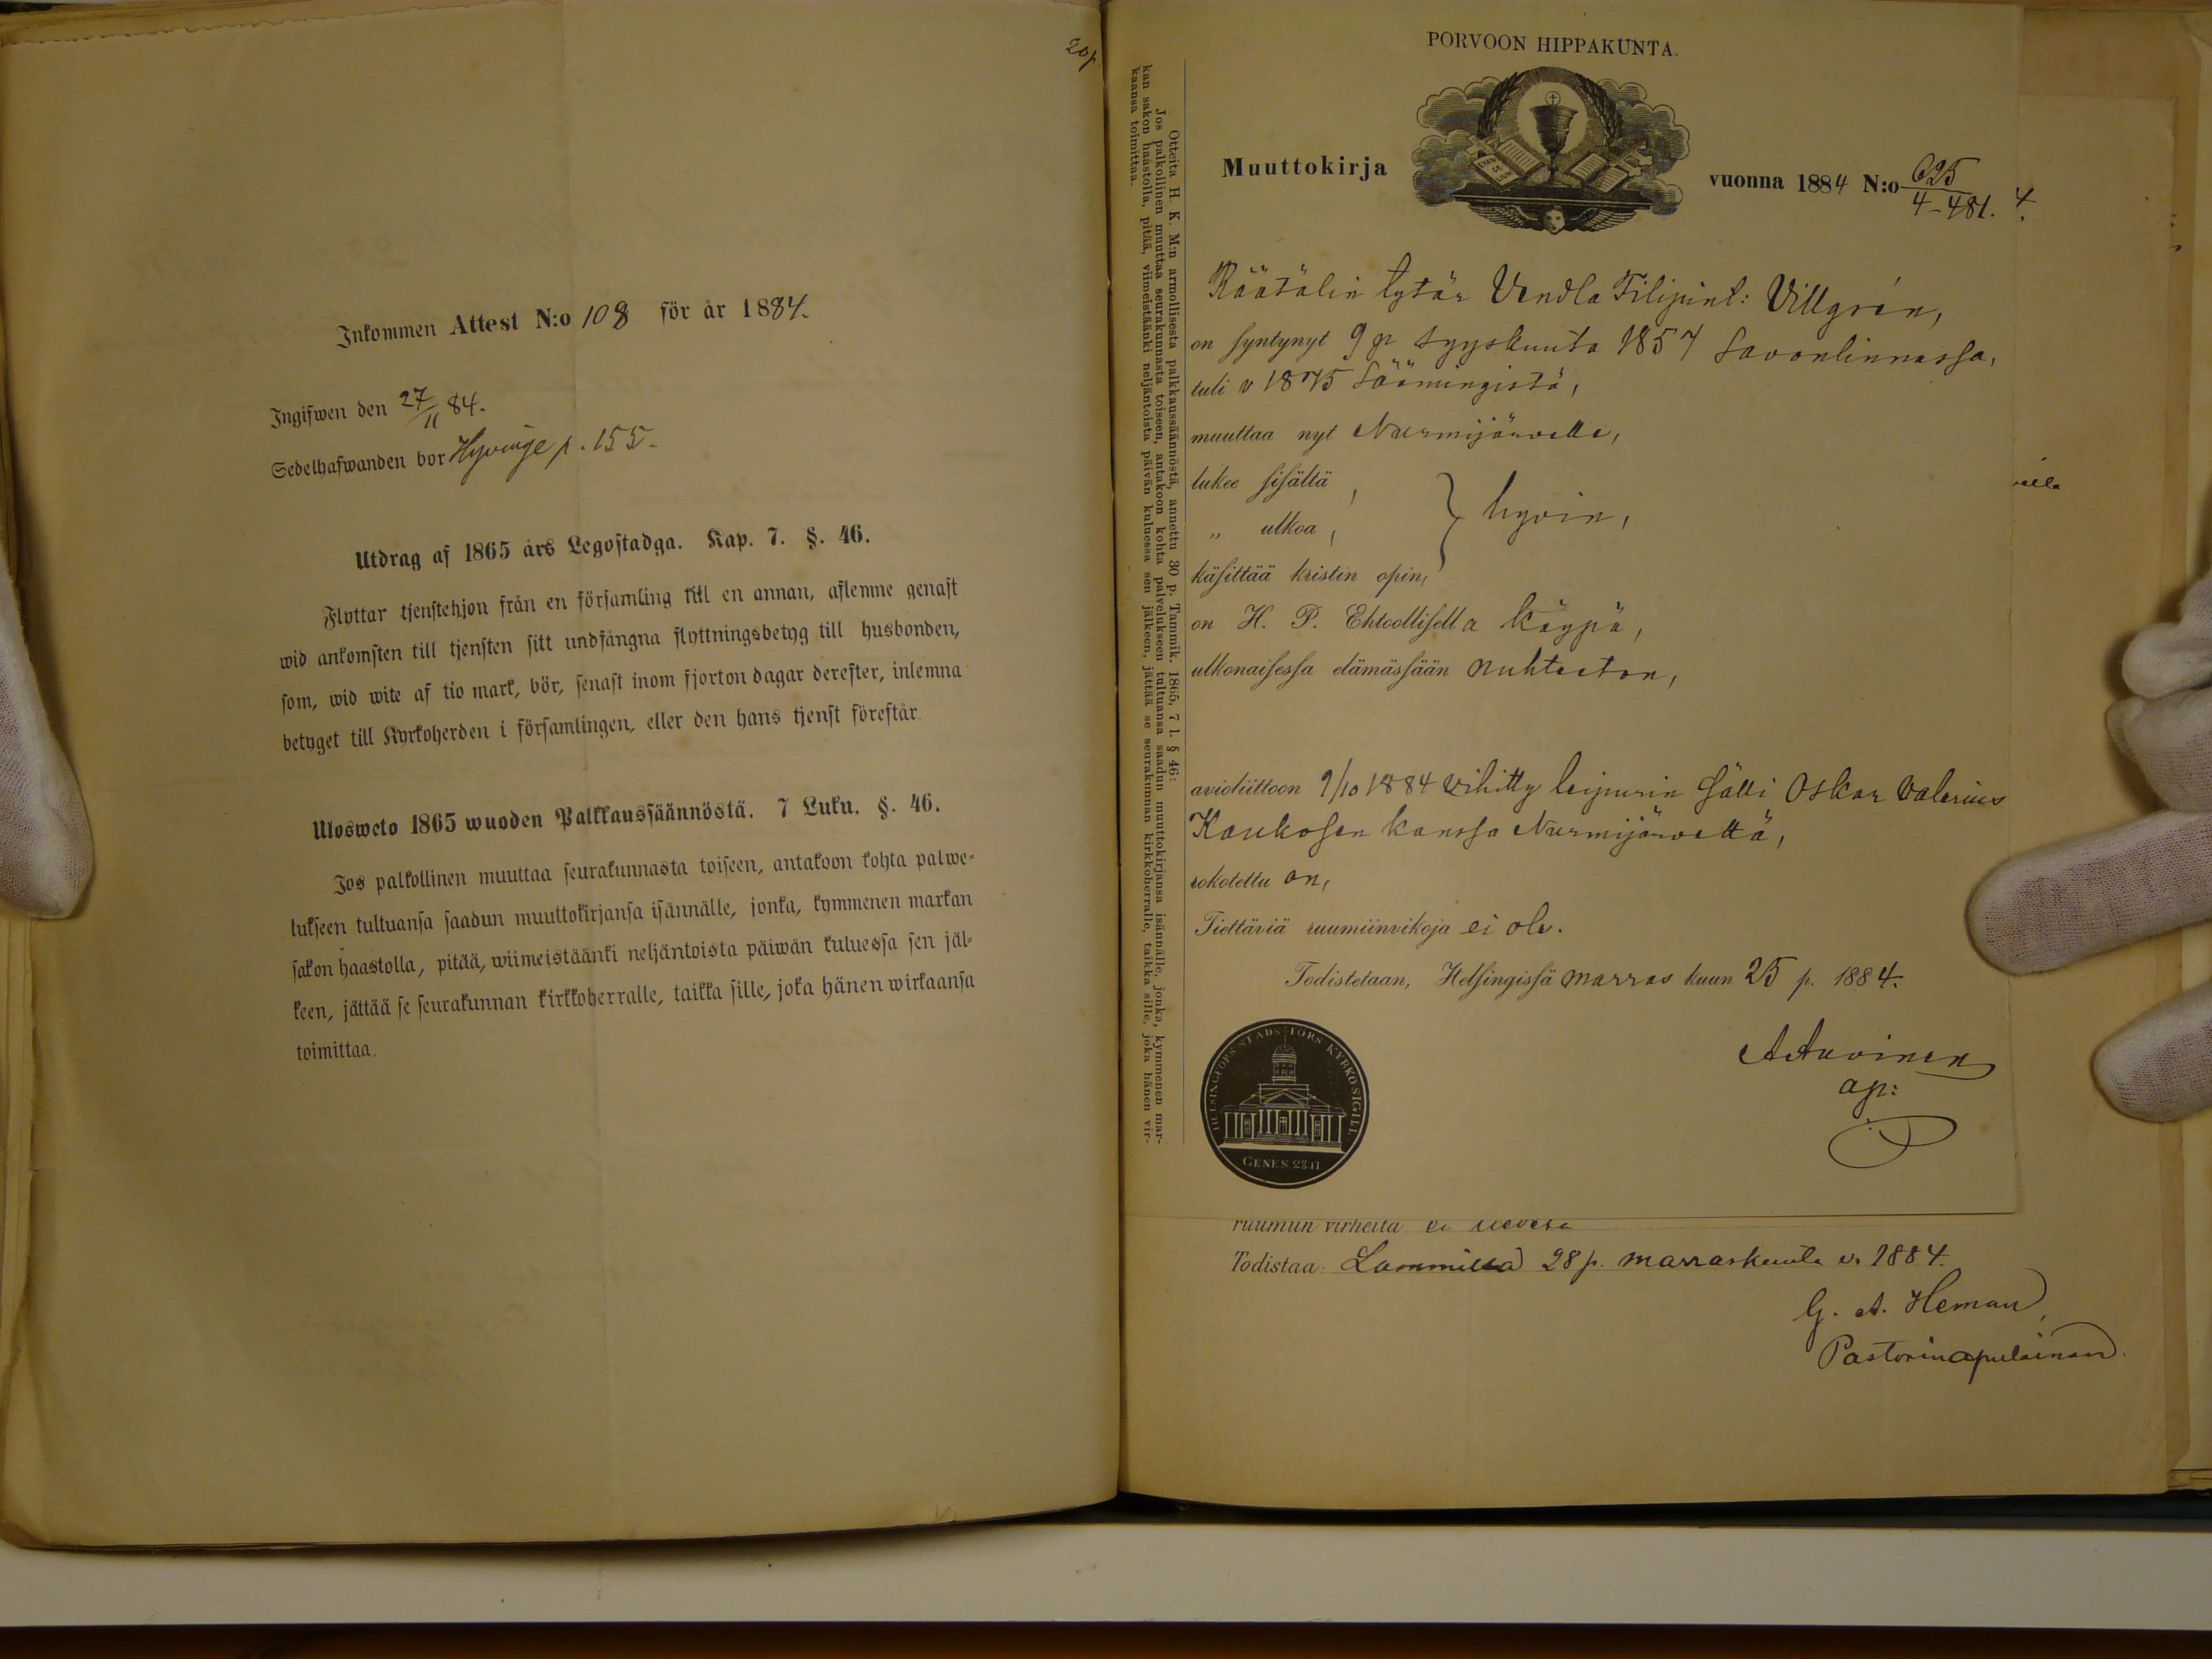 207
Inkommen Attest N:o 108 för år 1884.
Ingifwen den 27/11 84.
Sedelhafwanden bor Hyvinge p. 155.
Utdrag af 1865 års Legostadga. Kap. 7. §. 46.
Flyttar tjenstehjon från en församling till en annan, aflemne genast
wid ankomsten till tjensten sitt undfångna flyttningsbetyg till husbonden,
som, wid wite af tio mark, bör, senast inom fjorton dagar derefter, inlemna
betyget till Kyrkoherden i församlingen, eller den hans tjenst förestår.
Ulosweto 1865 wuoden Palkkaussäännöstä. 7 Luku. §. 46.
Jos palkollinen muuttaa seurakunnasta toiseen, antakoon kohta palwe-
lukseen tultuansa saadun muuttokirjansa isännälle, jonka, kymmenen markan
sakon haastolla, pitää, wiimeistäänki neljäntoista päiwän kuluessa sen jäl-
keen, jättää se seurakunnan kirkkoherralle, taikka sille, joka hänen wirkaansa
toimittaa.
Otteita H. K. M:n armollisesta palkkaussäännöstä, annettu 30 p. Tammik. 1865, 7 l. § 46:
Jos palkollinen muuttaa seurakunnasta toiseen, antakoon kohta palvelukseen tultuansa saadun muuttokirjansa isännälle, jonka, kymmenen mar-
kan sakon haastolla, pitää, viimeistäänki neljäntoista päivän kuluessa sen jälkeen, jättää se seurakunnan kirkkoherralle, taikka sille, joka hänen vir-
kaansa toimittaa.
PORVOON HIPPAKUNTA.
EVAN GE LIUM
Muuttokirja vuonna 1884 N:o 625
4-481. 4.
Räätälin tytär Vendla Filipint: Villgrén,
on syntynyt 9 p syyskuuta 1857 Savonlinnassa,
tuli v 1875 Säämingistä,
muuttaa nyt Nurmijärvelle,
lukee sisältä,
„ ulkoa, } hyvin,
käsittää kristin opin,
on H. P. Ehtoollisella käypä,
ulkonaisessa elämässään nuhteeton,
avioliittoon 9/10 1884 vihitty leipurin sälli Oskar Valerius
Kaukosen kanssa Nurmijärveltä,
rokotettu on,
Tiettäviä ruumiinvikoja ei ole.
Todistetaan, Helsingissä marras kuun 25 p. 1884.
A Auvinen
ap:
HELSINGFORS STADS KYRKOSIGILL
GENES. 28.17
ruumiin virheitä ei
Todistaa: Lammilla 28 p. marraskuuta v. 1884.
G. A. Heman,
Pastorinapulainen.